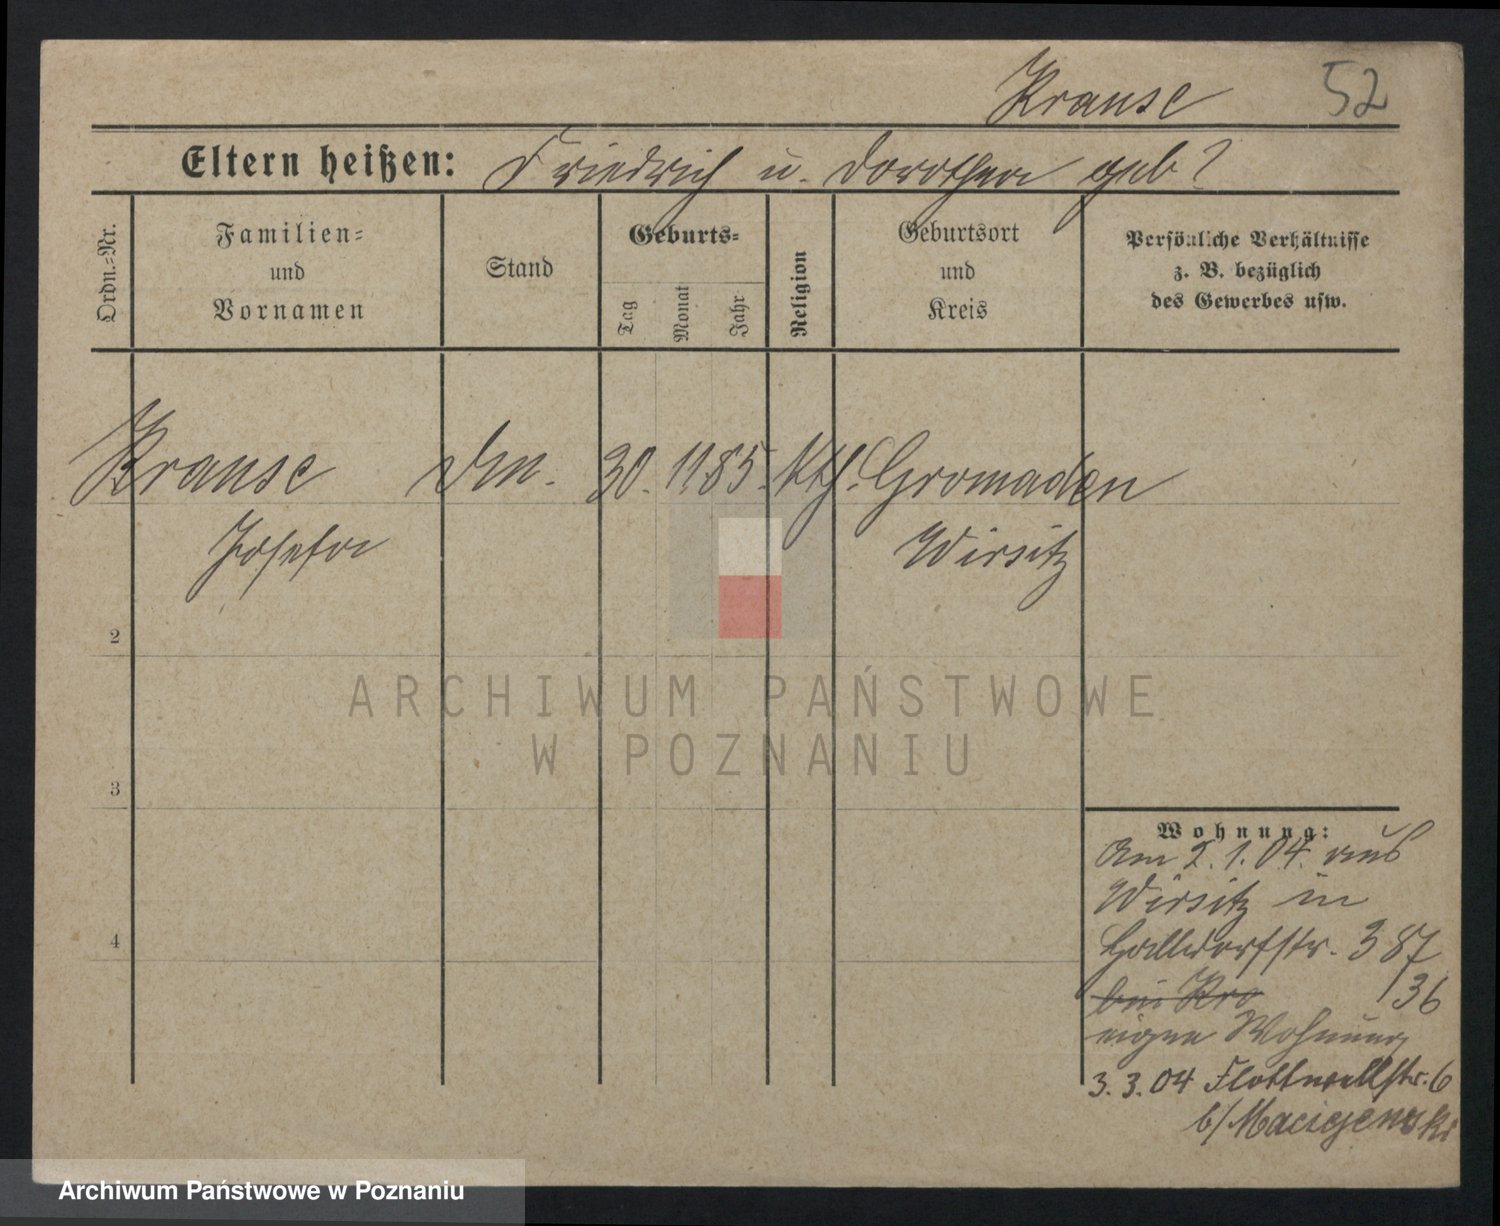 Krause 52
Eltern heißen: Friedrich u. Dorothea geb?
Ordn.-Nr.
Familien-
und
Vornamen
Stand
Geburts-
Tag
Monat
Jahr
Religion
Geburtsort
und
Kreis
Persönliche Verhältnisse
z. B. bezüglich
des Gewerbes usw.
Krause 30. 11. 85. kth. Gromaden
Josefa Wirsitz
2
3
4
Wohnung:
Am 2. 1. 04. aus
Wirsitz in
387
bei Kro 136
eigne Wohnung
3. 3. 04 Flottwellstr. 6
b/
ARCHIWUM PAŃSTWOWE
W POZNANIU
Archiwum Państwowe w Poznaniu